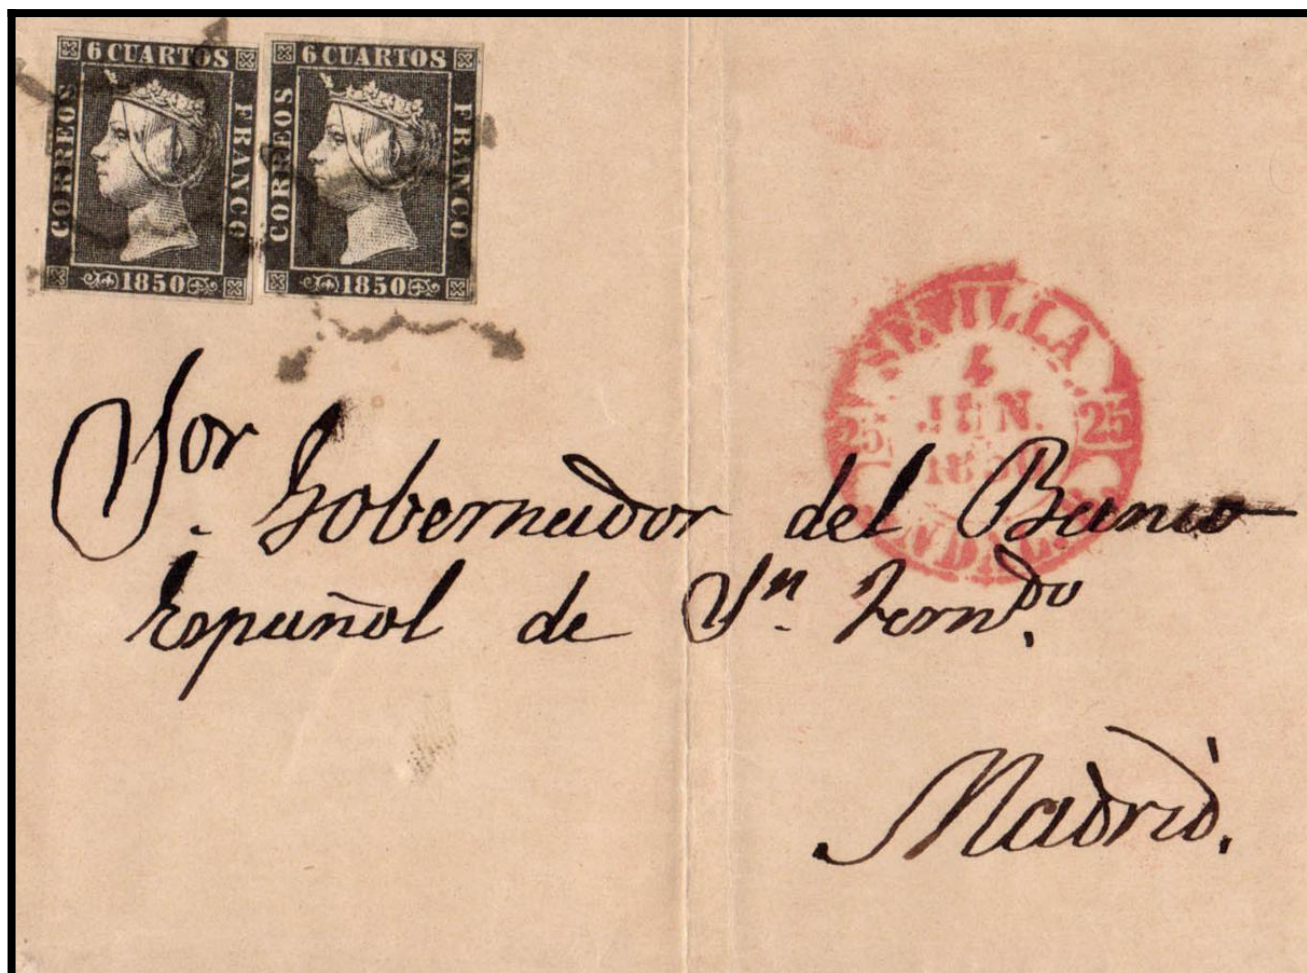 6 CUARTOS
CORREOS
FRANCO
1850
6 CUARTOS
CORREOS
FRANCO
1850
SEVILLA
4
JUN.
25
25
1850
Sor. Gobernador del Banco
Español de Sn. Fern.do
Madrid.